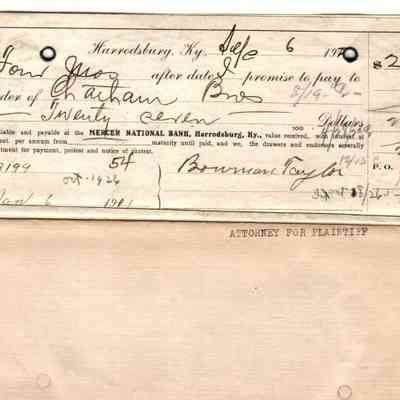 Harrodsburg, Ky., Sep 6 19
Four Mos after date I promise to pay to $2
der of Chatham Bros
Twenty seven Dollars
able and payable at the MERCER NATIONAL BANK, Harrodsburg, Ky., value received, with interest at
ent. per annum from maturity until paid, and we, the drawers and endorsers severally
ntment for payment, protest and notice of protest.
8199 54 Bowman Taylor P. O.
Oct-1926
Jan 6 19
ATTORNEY FOR PLAINTIFF